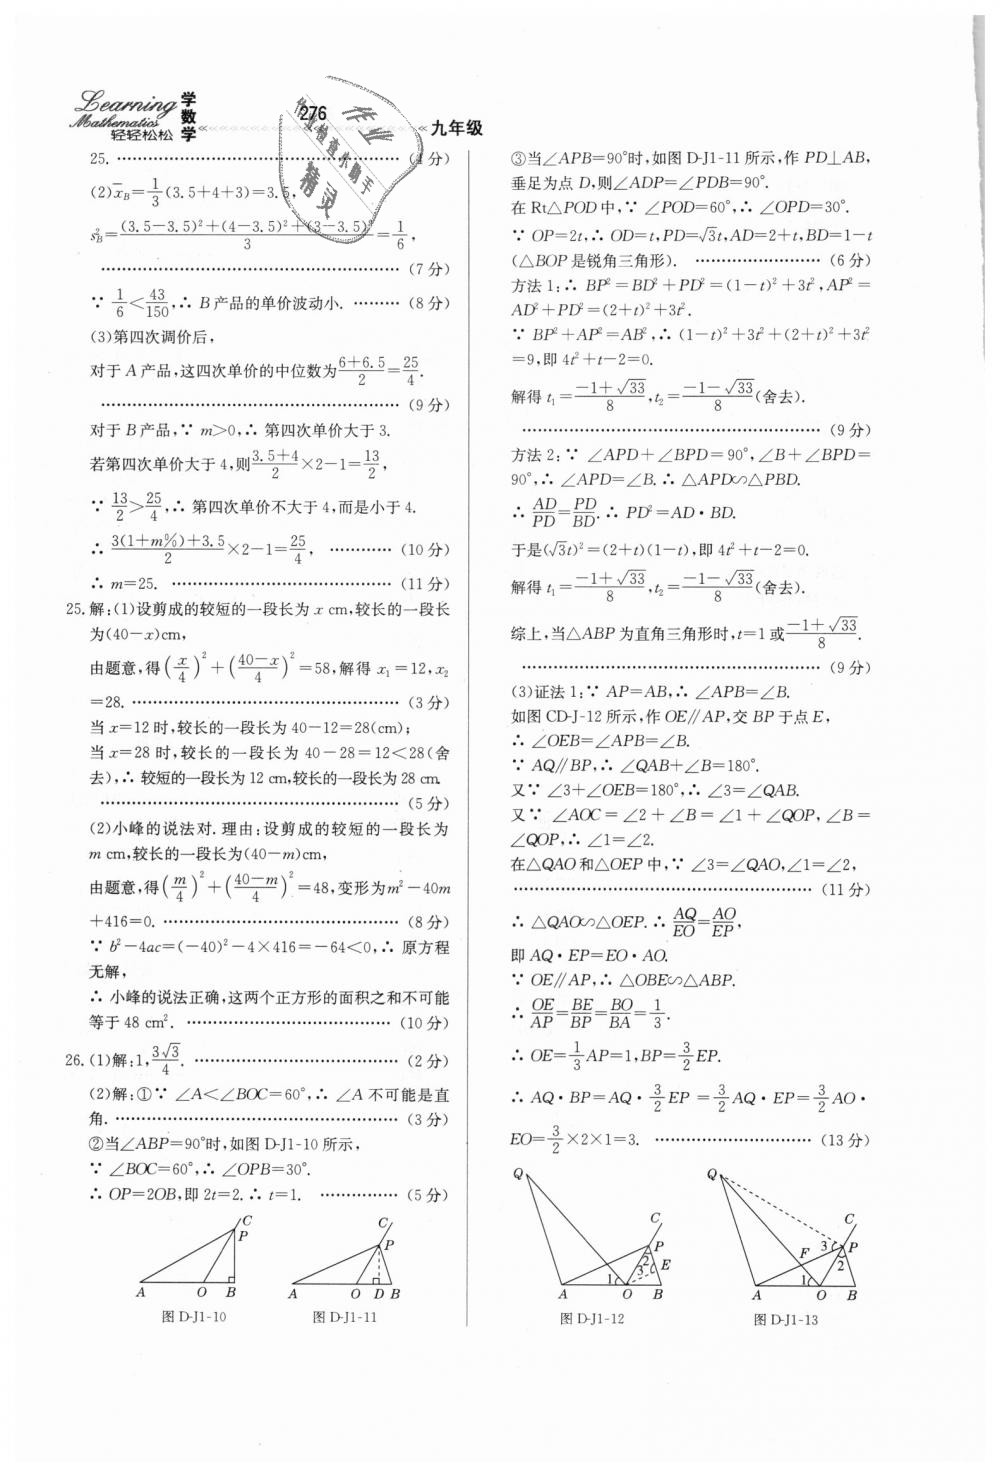 Learning
Mathematics
轻轻松松
学数学
276
九年级
作业
作业检查小助手
精灵
25. ……………………………………………… (4分)
(2)x̄_B=1/3(3.5+4+3)=3.5,
s²_B=[(3.5−3.5)²+(4−3.5)²+(3−3.5)²]/3=1/6,
……………………………………………… (7分)
∵ 1/6<43/150,∴ B产品的单价波动小. ……… (8分)
(3)第四次调价后,
对于A产品,这四次单价的中位数为(6+6.5)/2=25/4.
……………………………………………… (9分)
对于B产品,∵ m>0,∴ 第四次单价大于3.
若第四次单价大于4,则(3.5+4)/2×2−1=13/2,
∵ 13/2>25/4,∴ 第四次单价不大于4,而是小于4.
∴ [3(1+m%)+3.5]/2×2−1=25/4, ………… (10分)
∴ m=25. ………………………………… (11分)
25. 解:(1)设剪成的较短的一段长为x cm,较长的一段长
为(40−x)cm,
由题意,得(x/4)²+((40−x)/4)²=58,解得x₁=12,x₂
=28. ………………………………………… (3分)
当x=12时,较长的一段长为40−12=28(cm);
当x=28时,较长的一段长为40−28=12<28(舍
去),∴ 较短的一段长为12 cm,较长的一段长为28 cm.
……………………………………………… (5分)
(2)小峰的说法对.理由:设剪成的较短的一段长为
m cm,较长的一段长为(40−m)cm,
由题意,得(m/4)²+((40−m)/4)²=48,变形为m²−40m
+416=0. …………………………………… (8分)
∵ b²−4ac=(−40)²−4×416=−64<0,∴ 原方程
无解,
∴ 小峰的说法正确,这两个正方形的面积之和不可能
等于48 cm². ………………………………… (10分)
26. (1)解:1,3√3/4. ………………………………… (2分)
(2)解:①∵ ∠A<∠BOC=60°,∴ ∠A不可能是直
角. …………………………………………… (3分)
②当∠ABP=90°时,如图D-J1-10所示,
∵ ∠BOC=60°,∴ ∠OPB=30°.
∴ OP=2OB,即2t=2.∴ t=1. …………… (5分)
C
P
A O B
图D-J1-10
C
P
A O D B
图D-J1-11
③当∠APB=90°时,如图D-J1-11所示,作PD⊥AB,
垂足为点D,则∠ADP=∠PDB=90°.
在Rt△POD中,∵ ∠POD=60°,∴ ∠OPD=30°.
∵ OP=2t,∴ OD=t,PD=√3t,AD=2+t,BD=1−t
(△BOP是锐角三角形). ………………… (6分)
方法1:∴ BP²=BD²+PD²=(1−t)²+3t²,AP²=
AD²+PD²=(2+t)²+3t².
∵ BP²+AP²=AB²,∴ (1−t)²+3t²+(2+t)²+3t²
=9,即4t²+t−2=0.
解得t₁=(−1+√33)/8,t₂=(−1−√33)/8(舍去).
……………………………………………… (9分)
方法2:∵ ∠APD+∠BPD=90°,∠B+∠BPD=
90°,∴ ∠APD=∠B.∴ △APD∽△PBD.
∴ AD/PD=PD/BD.∴ PD²=AD·BD.
于是(√3t)²=(2+t)(1−t),即4t²+t−2=0.
解得t₁=(−1+√33)/8,t₂=(−1−√33)/8(舍去).
综上,当△ABP为直角三角形时,t=1或(−1+√33)/8.
……………………………………………… (9分)
(3)证法1:∵ AP=AB,∴ ∠APB=∠B.
如图CD-J-12所示,作OE∥AP,交BP于点E,
∴ ∠OEB=∠APB=∠B.
∵ AQ∥BP,∴ ∠QAB+∠B=180°.
又∵ ∠3+∠OEB=180°,∴ ∠3=∠QAB.
又∵ ∠AOC=∠2+∠B=∠1+∠QOP,∠B=
∠QOP,∴ ∠1=∠2.
在△QAO和△OEP中,∵ ∠3=∠QAO,∠1=∠2,
……………………………………………… (11分)
∴ △QAO∽△OEP.∴ AQ/EO=AO/EP,
即AQ·EP=EO·AO.
∵ OE∥AP,∴ △OBE∽△ABP.
∴ OE/AP=BE/BP=BO/BA=1/3.
∴ OE=1/3AP=1,BP=3/2EP.
∴ AQ·BP=AQ·3/2EP=3/2AQ·EP=3/2AO·
EO=3/2×2×1=3. ………………………… (13分)
Q
C
P
2
3 E
1
A O B
图D-J1-12
Q
C
F 3 P
2
1
A O B
图D-J1-13